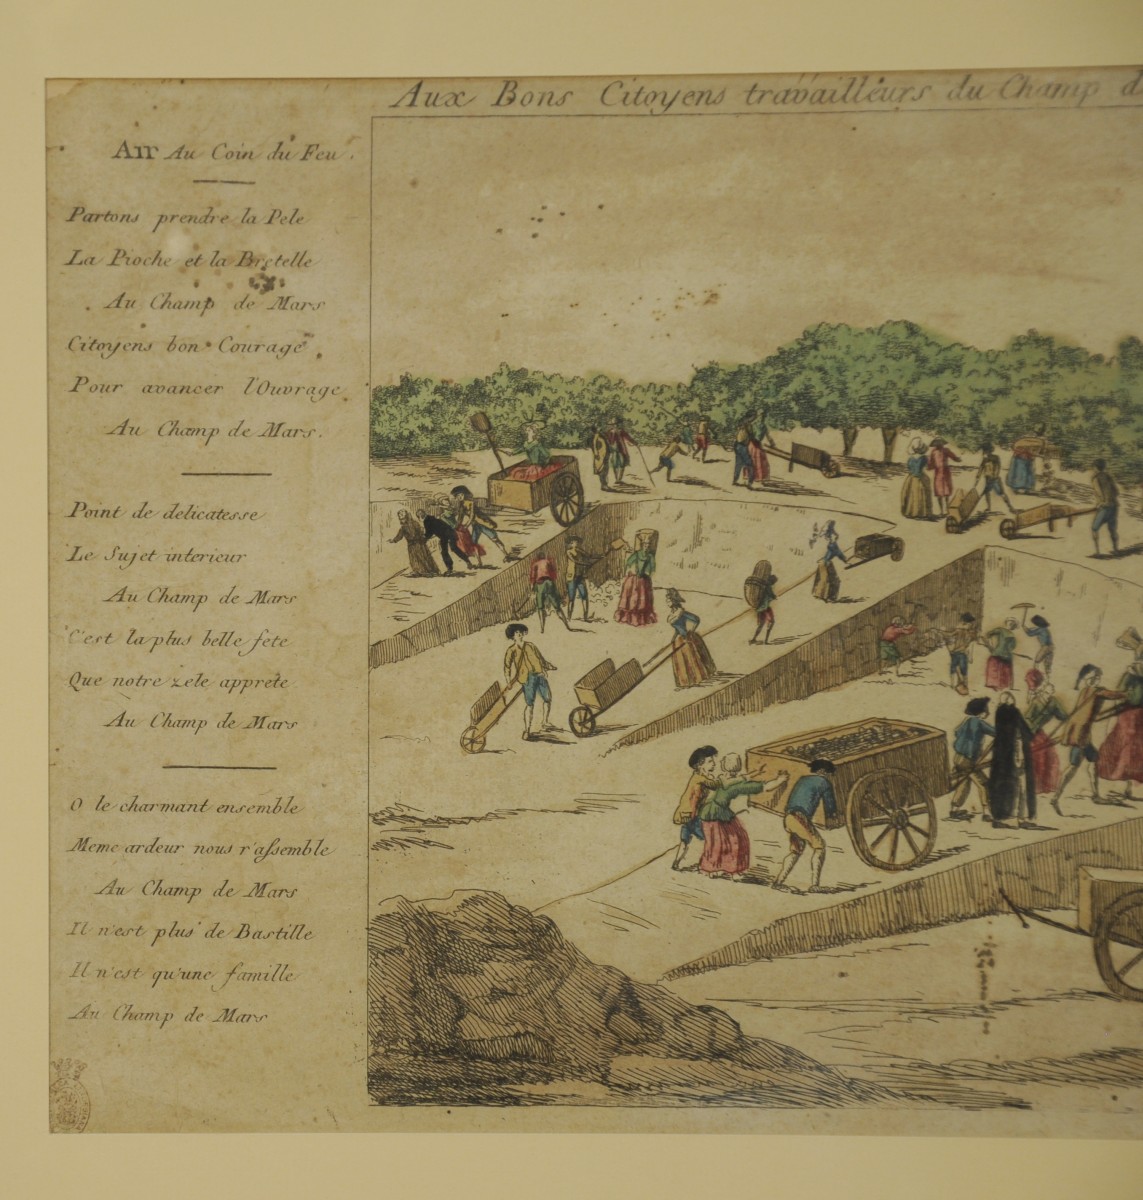 Aux Bons Citoyens travailleurs du Champ d
Air Au Coin du Feu.
Partons prendre la Pele
La Pioche et la Bretelle
Au Champ de Mars
Citoyens bon Courage
Pour avancer l'Ouvrage
Au Champ de Mars.
Point de delicatesse
Le Sujet interieur
Au Champ de Mars
C'est la plus belle fete
Que notre zele apprete
Au Champ de Mars
O le charmant ensemble
Meme ardeur nous r'assemble
Au Champ de Mars
Il n'est plus de Bastille
Il n'est qu'une famille
Au Champ de Mars